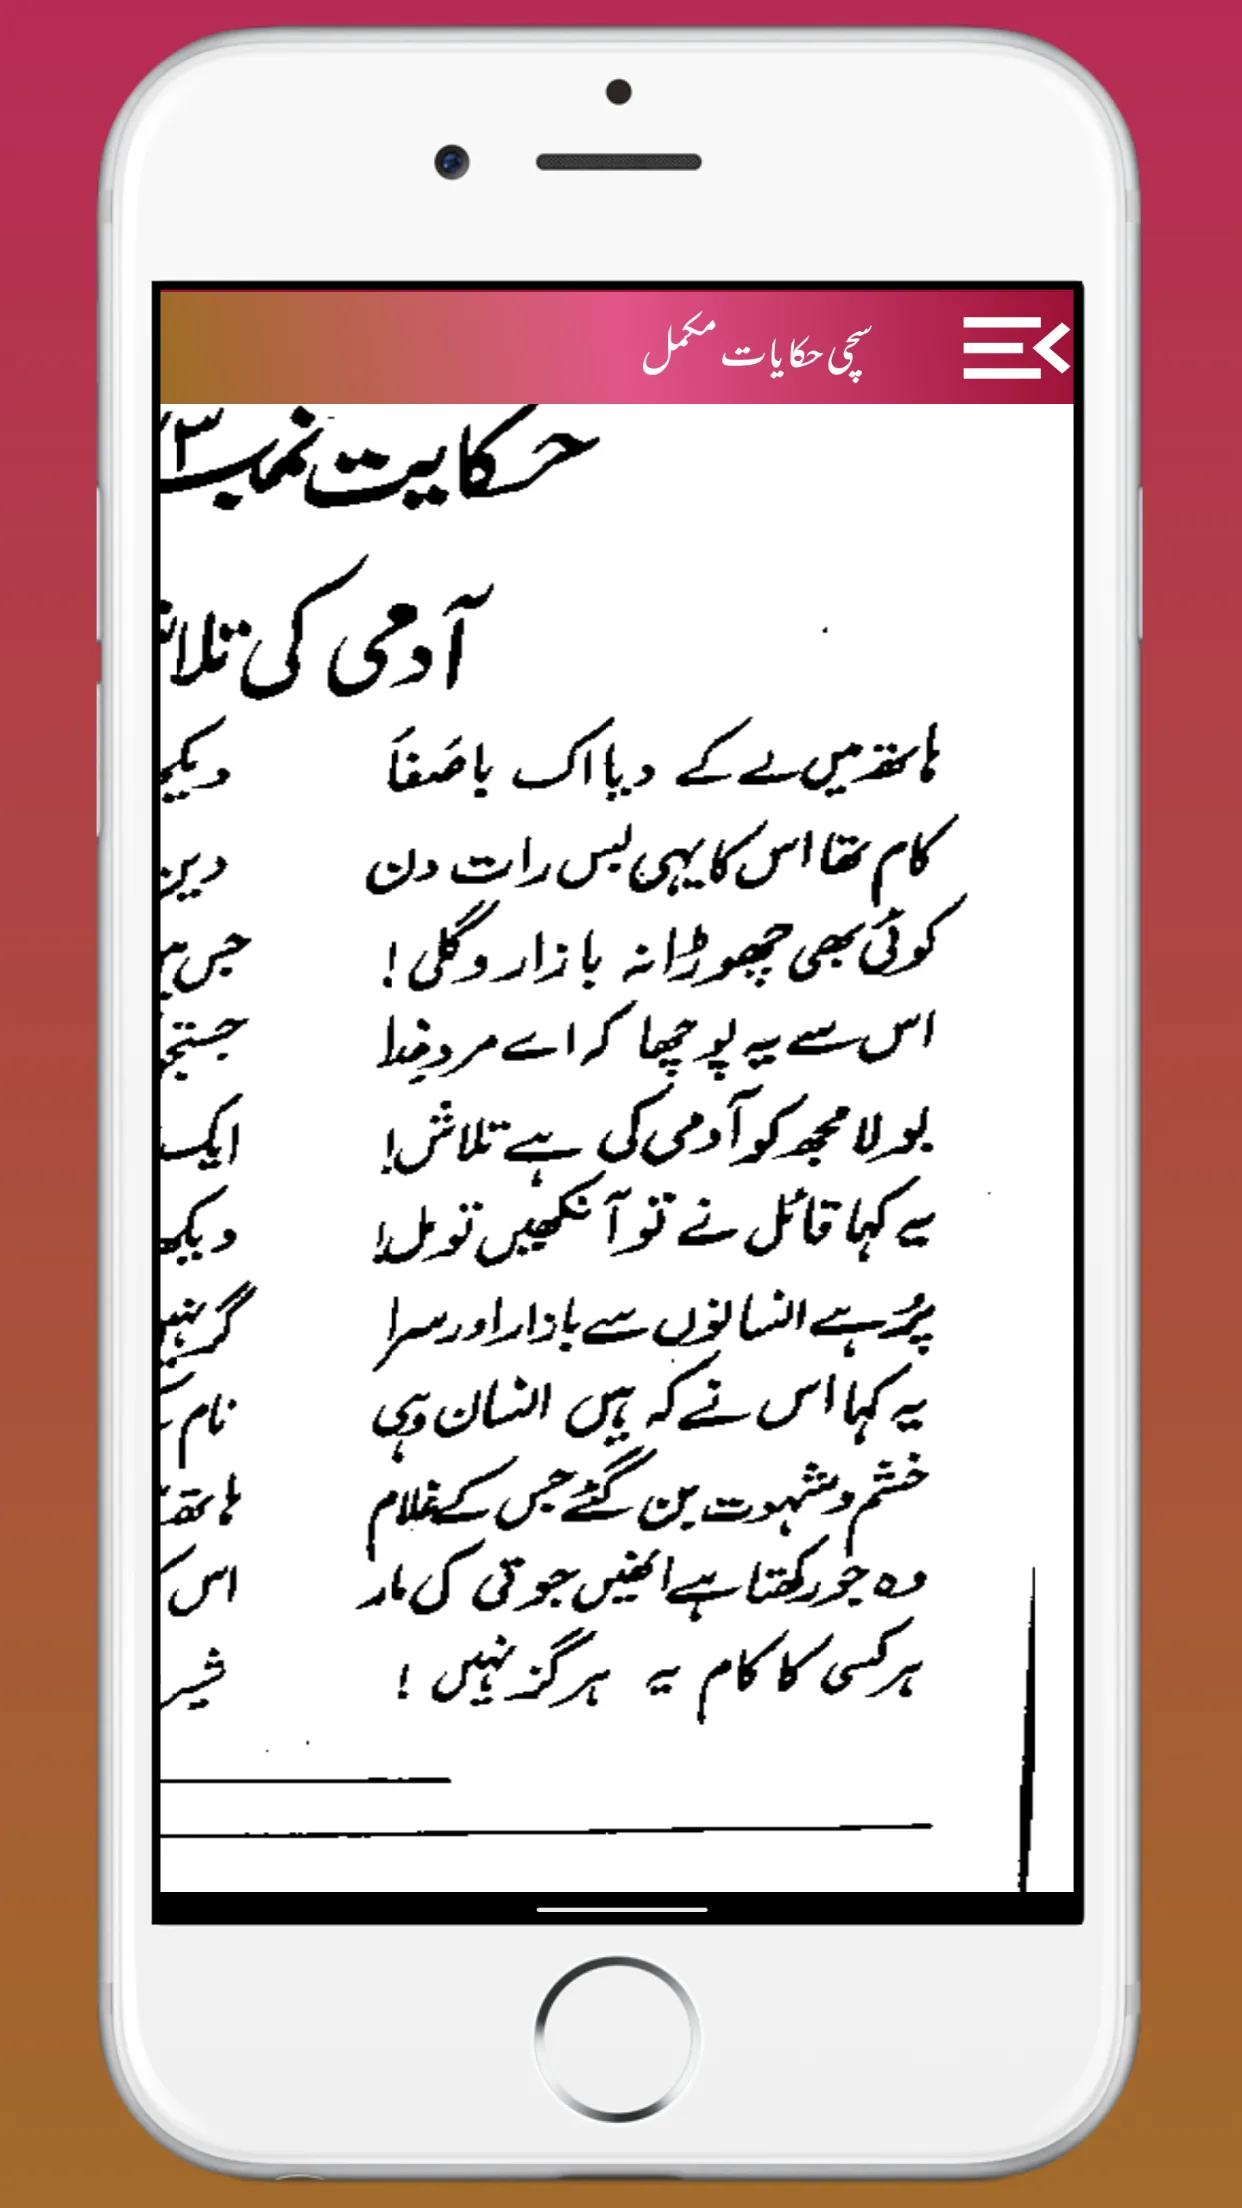 سچی حکایات مکمل
حکایت نمبر
آدمی کی
ہاتھ میں لے کے دیا اک با صَفاَ
کام تھا اس کا یہی بس رات دن دین
کوئی بھی چھوڑا نہ بازار و گلی !
اس سے یہ پوچھا کہ اے مردِ خدا
بولا مجھ کو آدمی کی ہے تلاش ! ایک
یہ کہا قائل نے تو آنکھیں تو مل !
پُر ہے انسانوں سے بازار اور سرا گر
یہ کہا اس نے کہ ہیں انسان وہی نام
خشم و شہوت بن گئے جس کے غلام
وہ جو رکھتا ہے انھیں جوتی کی مار اس
ہر کسی کا کام یہ ہرگز نہیں !